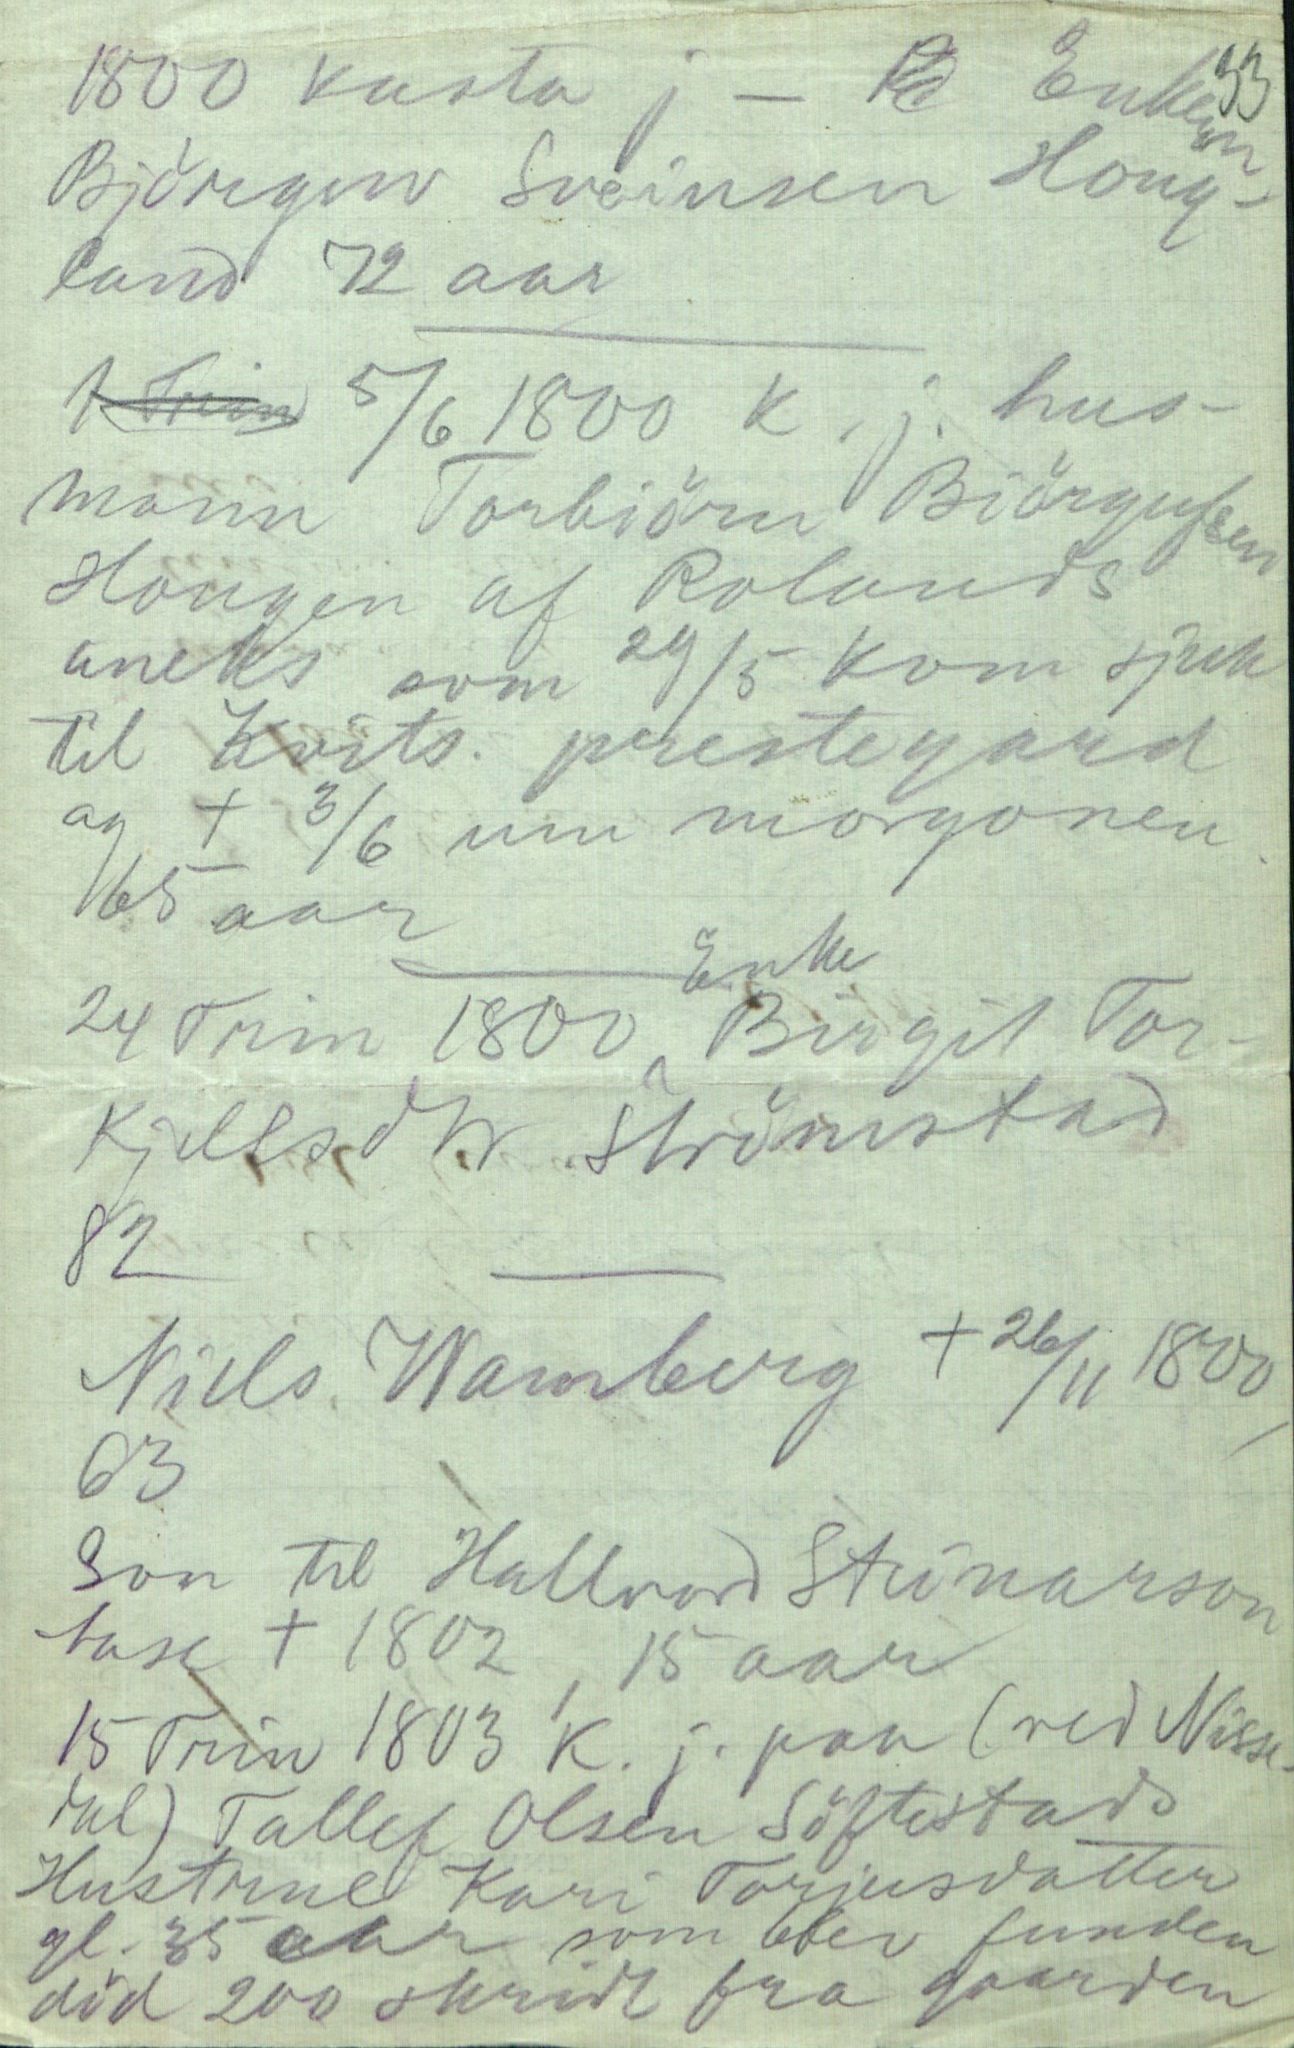 33
1800 kasta j – Enkem
Björguv Sveinsen Houg-
land 72 aar
1 Trin 5/6 1800 K. j. hus-
mann Torbiörn Biörgufsen
Hougen af Rolands
aneks som 29/5 kom sjuk
til Kvits. prestegard
og + 3/6 um morgonen.
65 aar
Enke
24 Trin 1800, Birgit Tor-
kjellsdtr Strömstad
82
Niels Wamberg + 26/11 1800,
63
Son til Hallvord Steinarson
+ 1802, 15 aar
15 Trin 1803 K. j. paa (ved Nisse-
dal) Tallef Olsen Söftestads
Hustrue Kari Torjusdatter
gl. 35 aar som blev funden
död 200 skridt fra gaarden